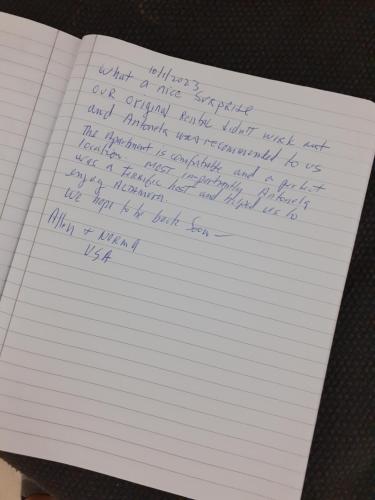 10/1/2023
What a nice surprise
our original rental didn't work out
and Antonela was recommended to us
The Apartment is comfortable and a perfect
location. Most importantly Antonela
was a terrific host and helped us to
enjoy
We hope to be back soon -
Allen + Norma
USA